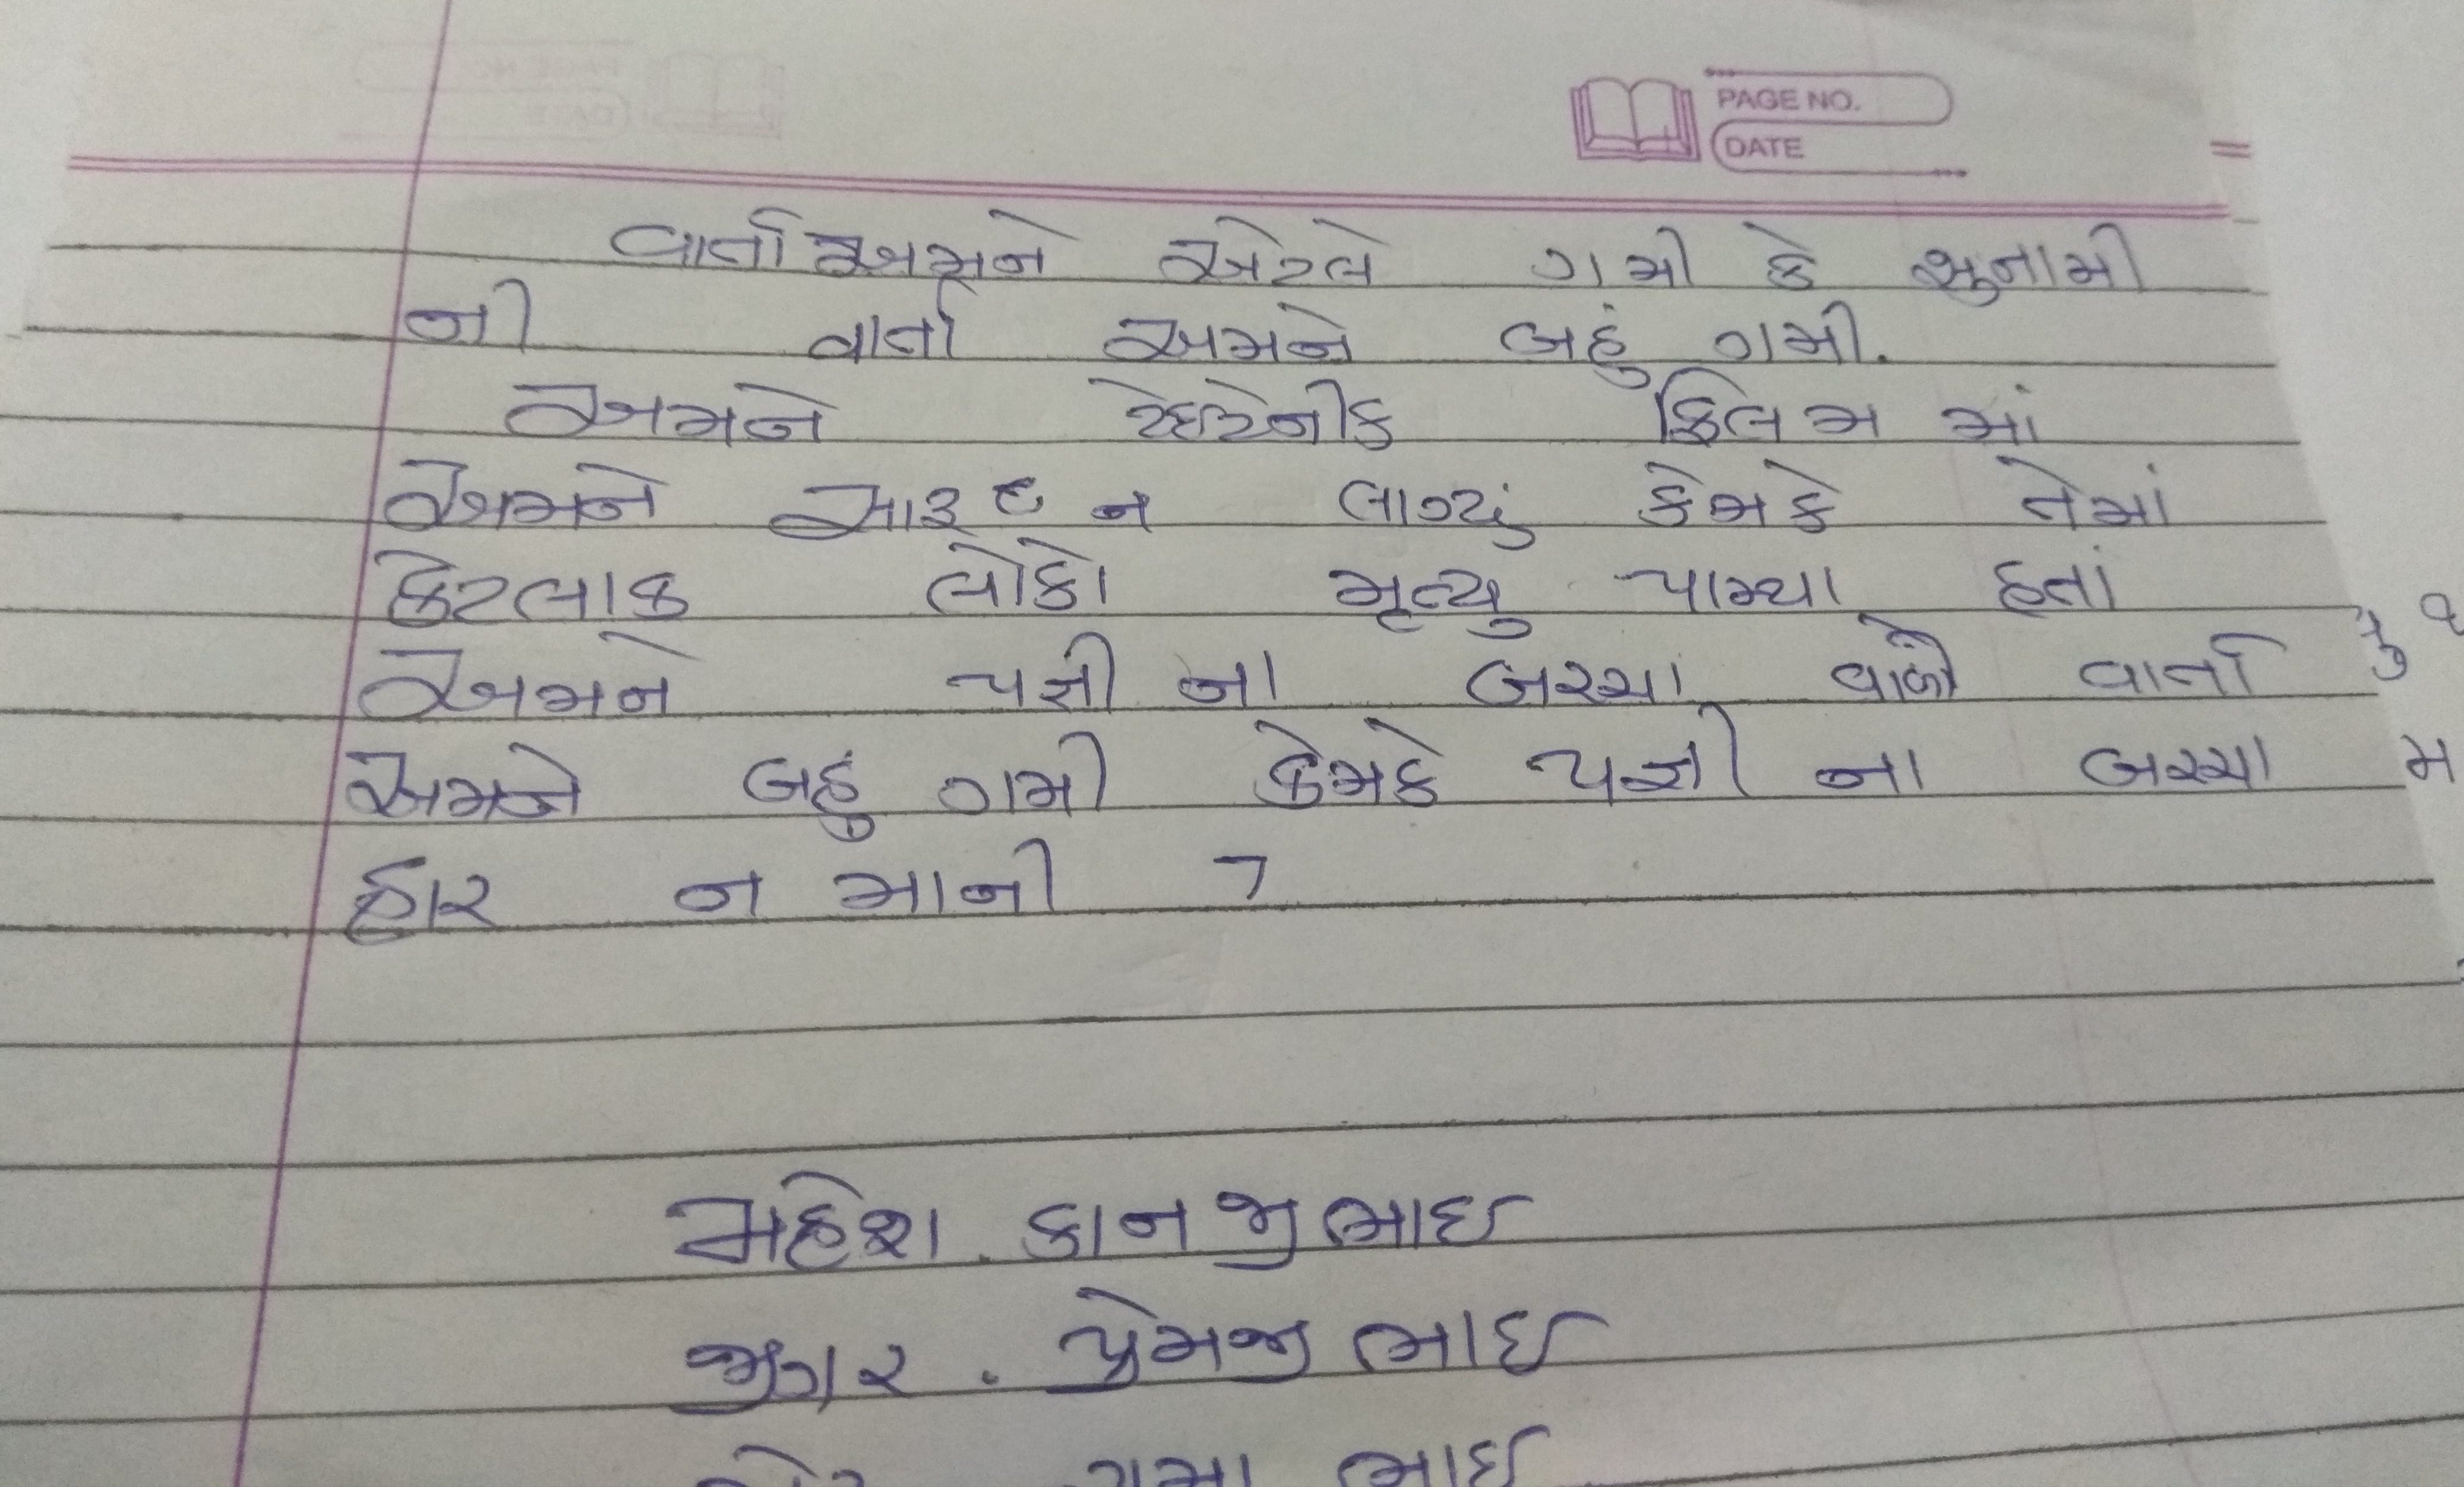 PAGE NO.
DATE
વાર્તા અમને એટલે ગમી કે સુનામી
ની વાર્તા અમને બહું ગમી.
અમને ટેઇટેનીક ફિલમ માં
અમને સારૂ ન લાગ્યું કેમકે તેમાં
કેટલાક લોકો મૃત્યુ પામ્યા હતાં
અમને પક્ષી ના બચ્ચા વાળી વાર્તા
અમને બહું ગમી કેમકે પક્ષી ના બચ્ચા
હાર ન માની
મહેશ. કાનજીભાઈ
જીગર. પ્રેમજીભાઈ
ભાઈ